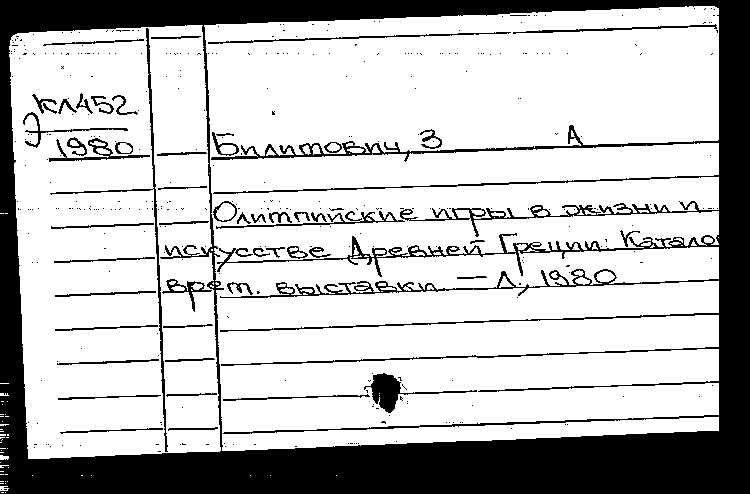 КЛ452
Э
1980
Билимович, З А
Олимпийские игры в жизни и
искусстве Древней Греции: Катало
врем. выставки — Л., 1980